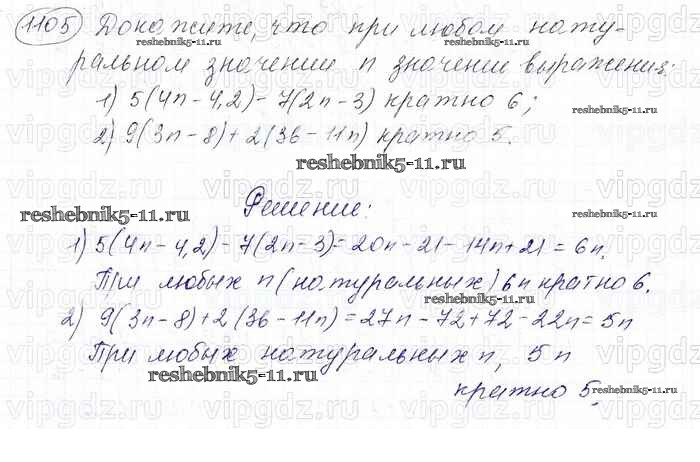 1105 Докажите, что при любом нату-
reshebnik5-11.ru reshebnik5-11.ru
ральном значении n значение выражения:
1) 5(4n-4,2)-7(2n-3) кратно 6;
reshebnik5-11.ru
2) 9(3n-8)+2(36-11n) кратно 5.
reshebnik5-11.ru
vipgdz.ru
Решение:
reshebnik5-11.ru
1) 5(4n-4,2)-7(2n-3)=20n-21-14n+21=6n.
При любых n (натуральных) 6n кратно 6.
reshebnik5-11.ru
2) 9(3n-8)+2(36-11n)=27n-72+72-22n=5n
При любых натуральных n, 5n
reshebnik5-11.ru
кратно 5.
reshebnik5-11.ru
vipgdz.ru